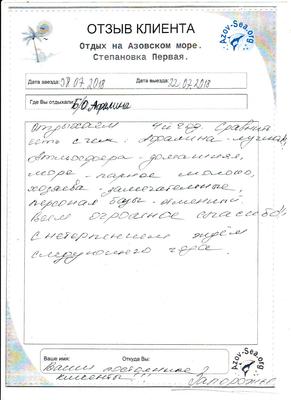 ОТЗЫВ КЛИЕНТА
Отдых на Азовском море.
Степановка Первая.
Azov-Sea.org
Дата заезда: 08.07.2018 Дата выезда: 22.07.2018
Где Вы отдыхали: Б/О Аралина
Отдыхаем 4й год. Сравнить
есть с чем. Аралина - лучшая,
Атмосфера - домашняя,
море - парное молоко,
хозяева - замечательные,
персонал базы - отменный.
Всем огромное спасибо!
С нетерпением ждём
следующего года.
Ваше имя: Откуда Вы:
Ваши постоянные
клиенты!!! г. Запорожье
Azov-Sea.org